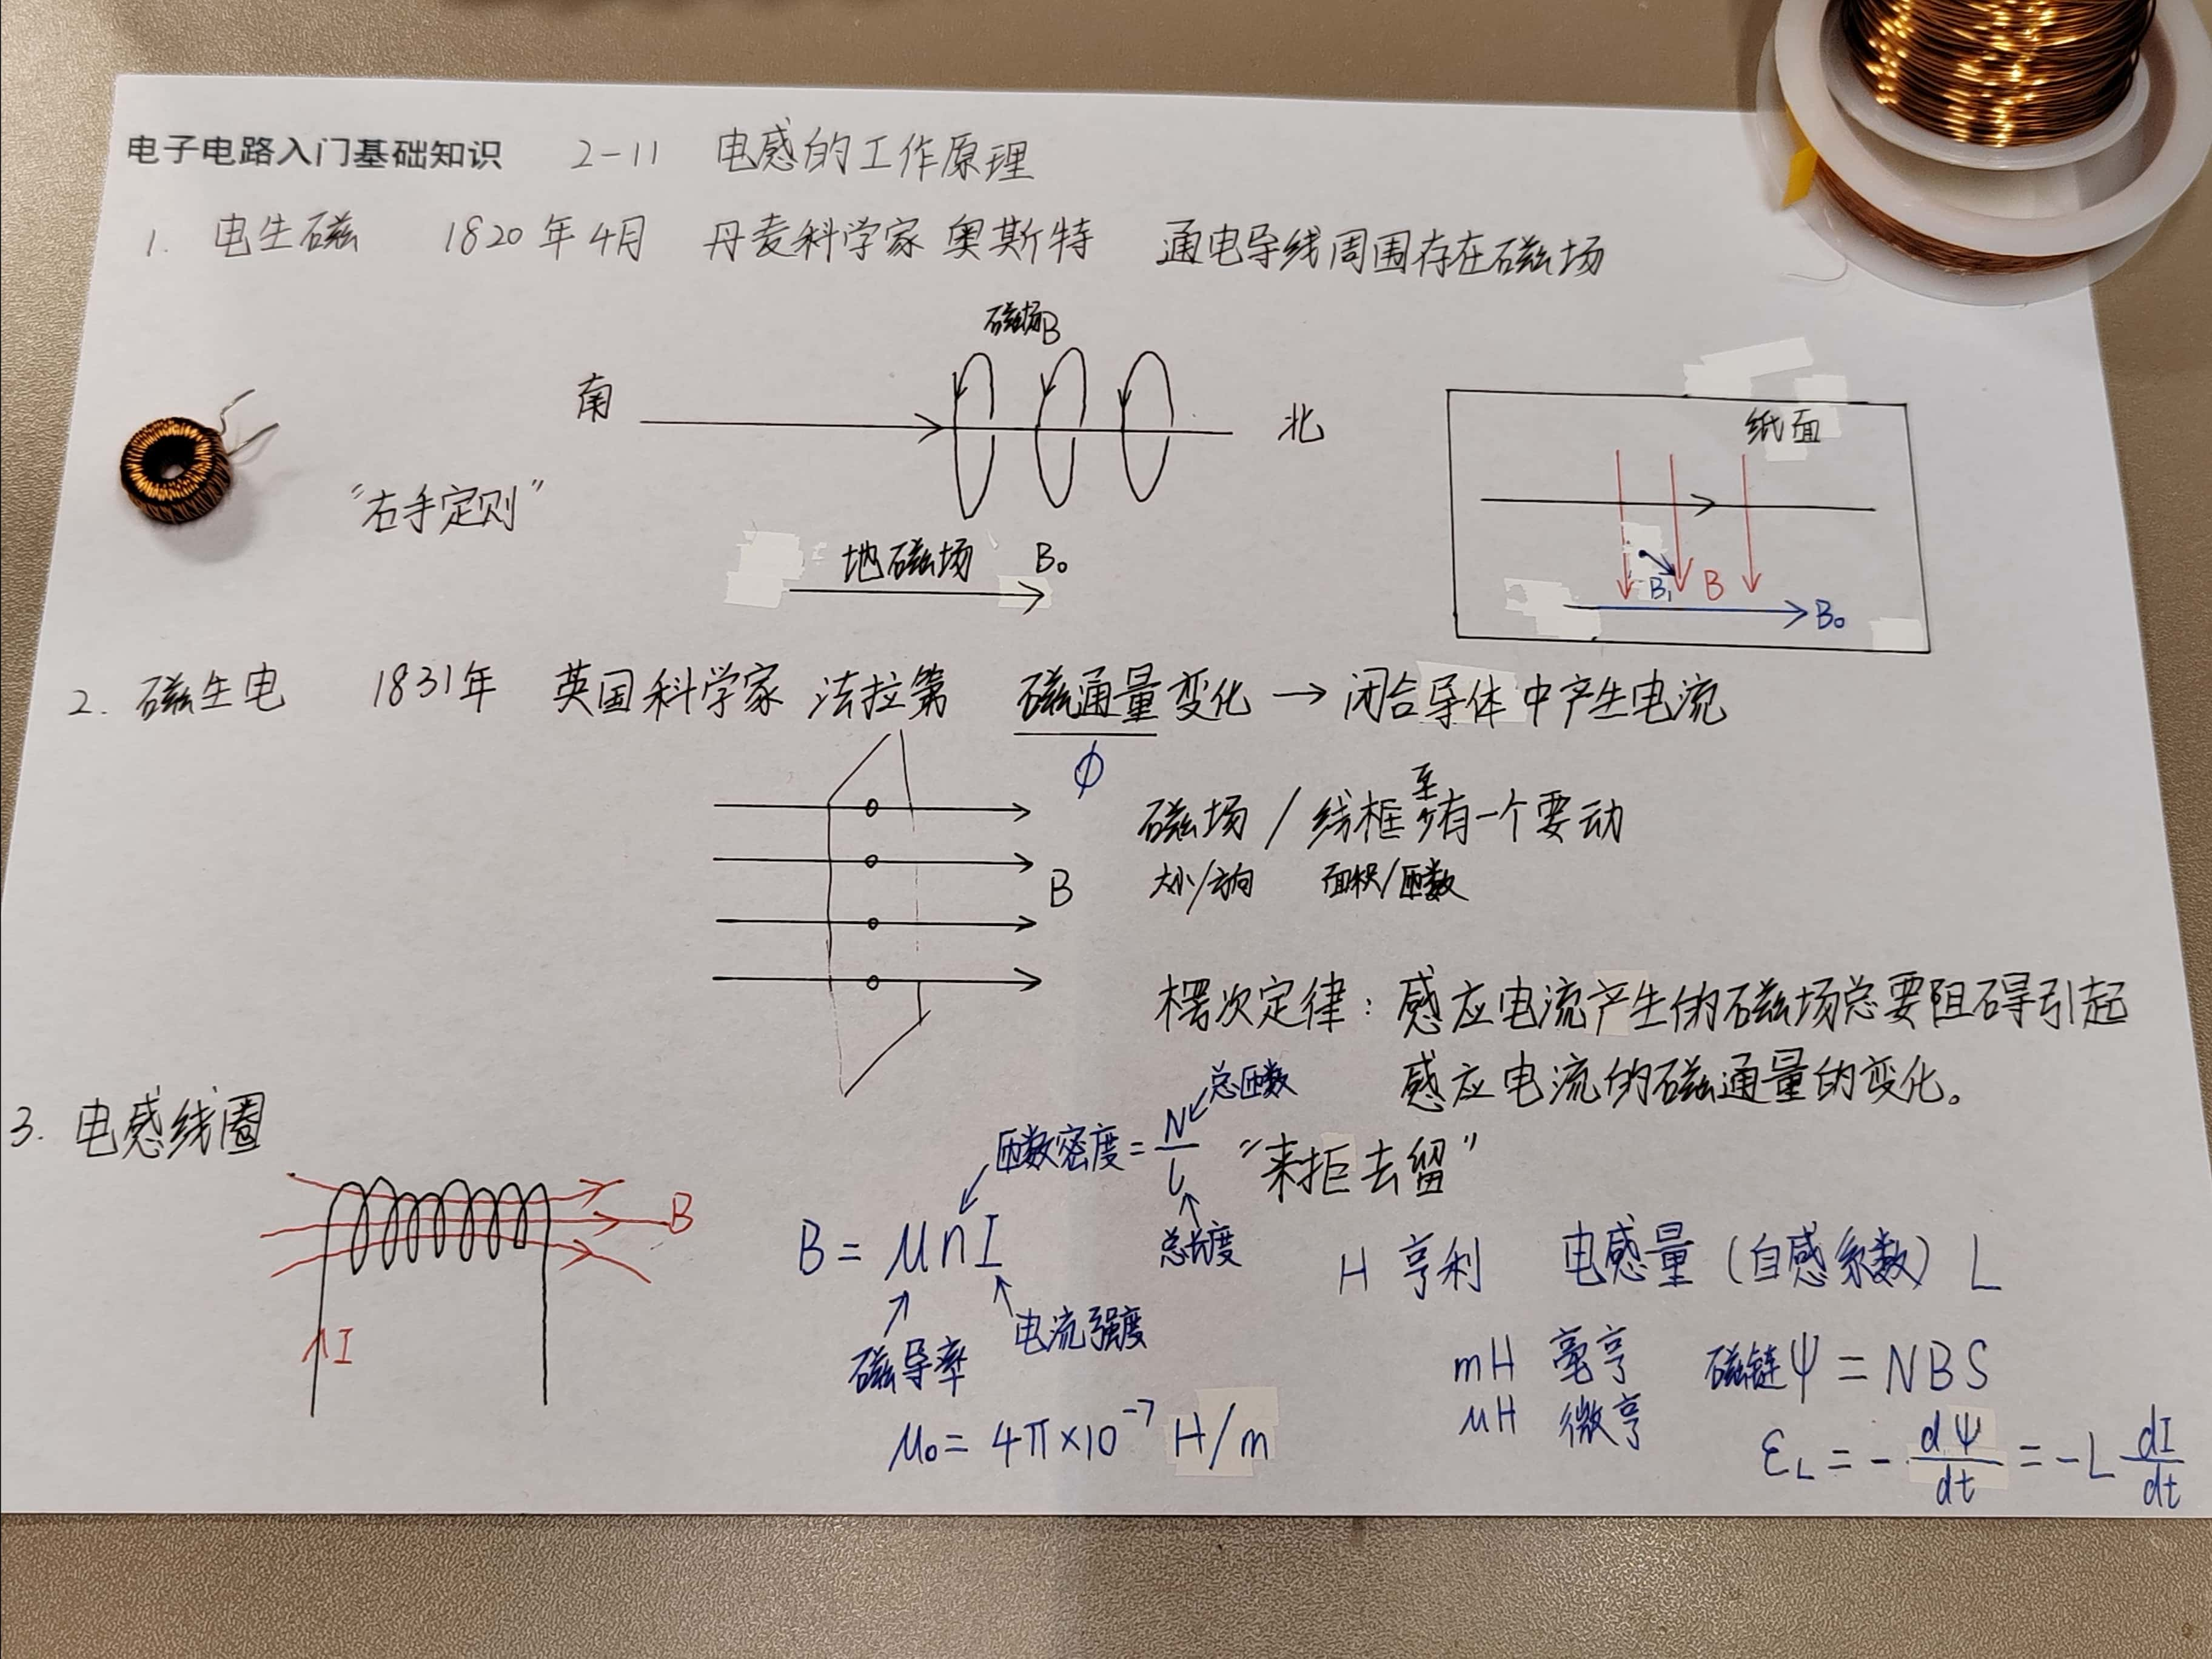 电子电路入门基础知识 2-11 电感的工作原理
1. 电生磁 1820年4月 丹麦科学家 奥斯特 通电导线周围存在磁场
磁场B
南
北
纸面
"右手定则"
地磁场 B₀
B₁ B
B₀
2. 磁生电 1831年 英国科学家 法拉第 磁通量变化 → 闭合导体中产生电流
ϕ
磁场 / 线框至少有一个要动
B
大小/方向 面积/匝数
楞次定律：感应电流产生的磁场总要阻碍引起
感应电流的磁通量的变化。
"来拒去留"
3. 电感线圈
B
I
总匝数
匝数密度 = N/l
总长度
B = μnI
磁导率
电流强度
μ₀ = 4π×10⁻⁷ H/m
H 亨利 电感量（自感系数）L
mH 毫亨 磁链Ψ = NBS
μH 微亨
ε_L = - dΨ/dt = -L dI/dt